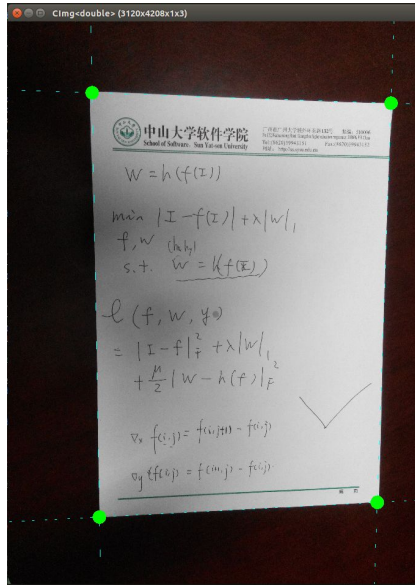 CImg<double> (3120x4208x1x3)
中山大学软件学院
School of Software, Sun Yat-sen University
W = h(f(I))
min |I - f(I)| + λ|W|₁
f, w (hx,hy)
s.t. W = h(f(I))
ℓ(f, w, y)
= |I - f|²_F + λ|W|₁
+ μ/2 |W - h(f)|²_F
∇x f(i,j) = f(i,j+1) - f(i,j)
∇y f(i,j) = f(i+1,j) - f(i,j).